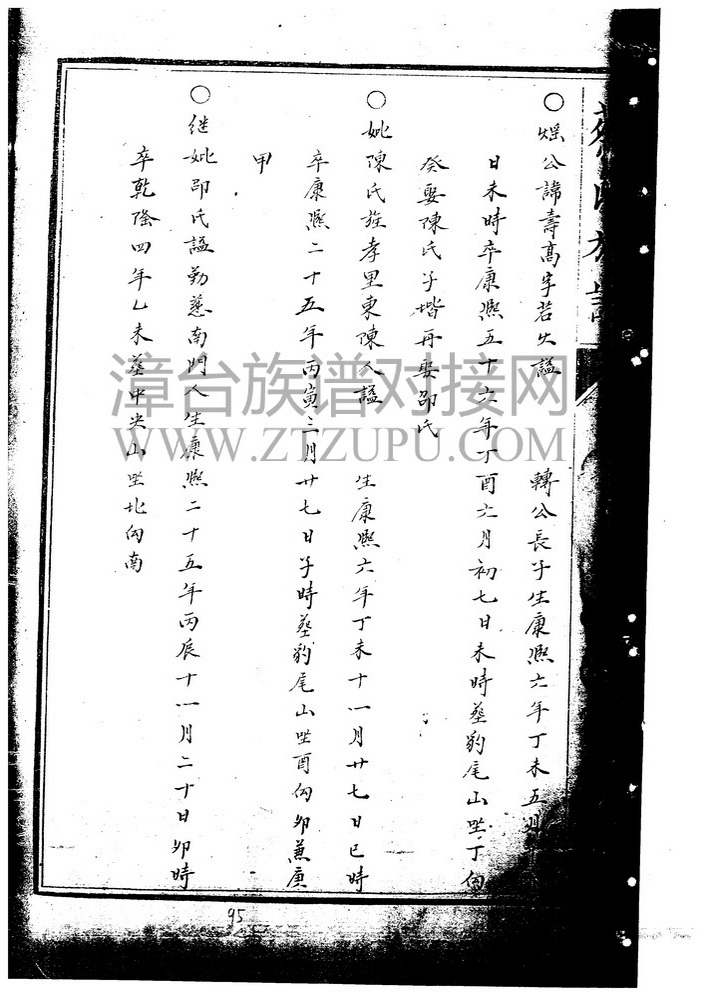 氏族譜
○煜公諱壽高字若火謚 轉公長子生康熙六年丁未五月
日未時卒康熙五十六年丁酉六月初七日未時塟豹尾山坐丁向
癸娶陳氏子堦再娶邵氏
○妣陳氏旌孝里東陳人謚 生康熙六年丁未十一月廿七日巳時
卒康熙二十五年丙寅三月廿七日子時塟豹尾山坐酉向卯兼庚
甲
○继妣邵氏謚勤慈南門人生康熙二十五年丙辰十一月二十日卯時
卒乾隆四年乙未塟中央山坐北向南
漳台族谱对接网
WWW.ZTZUPU.COM
95